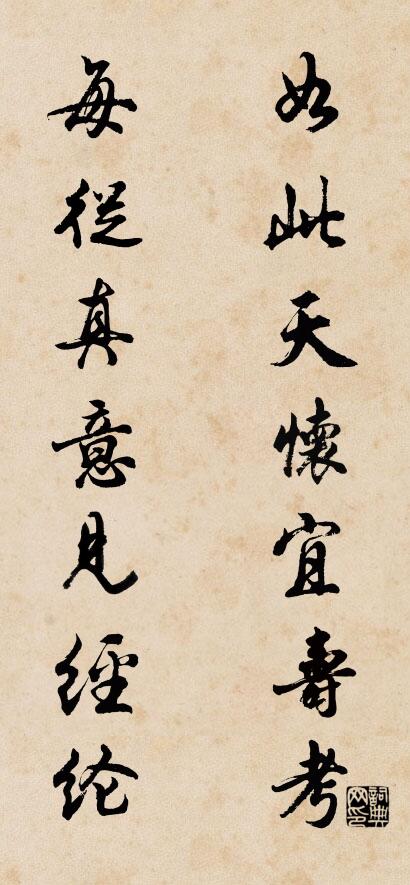 如此天懷宜壽考
每從真意見經纶
詞典網印